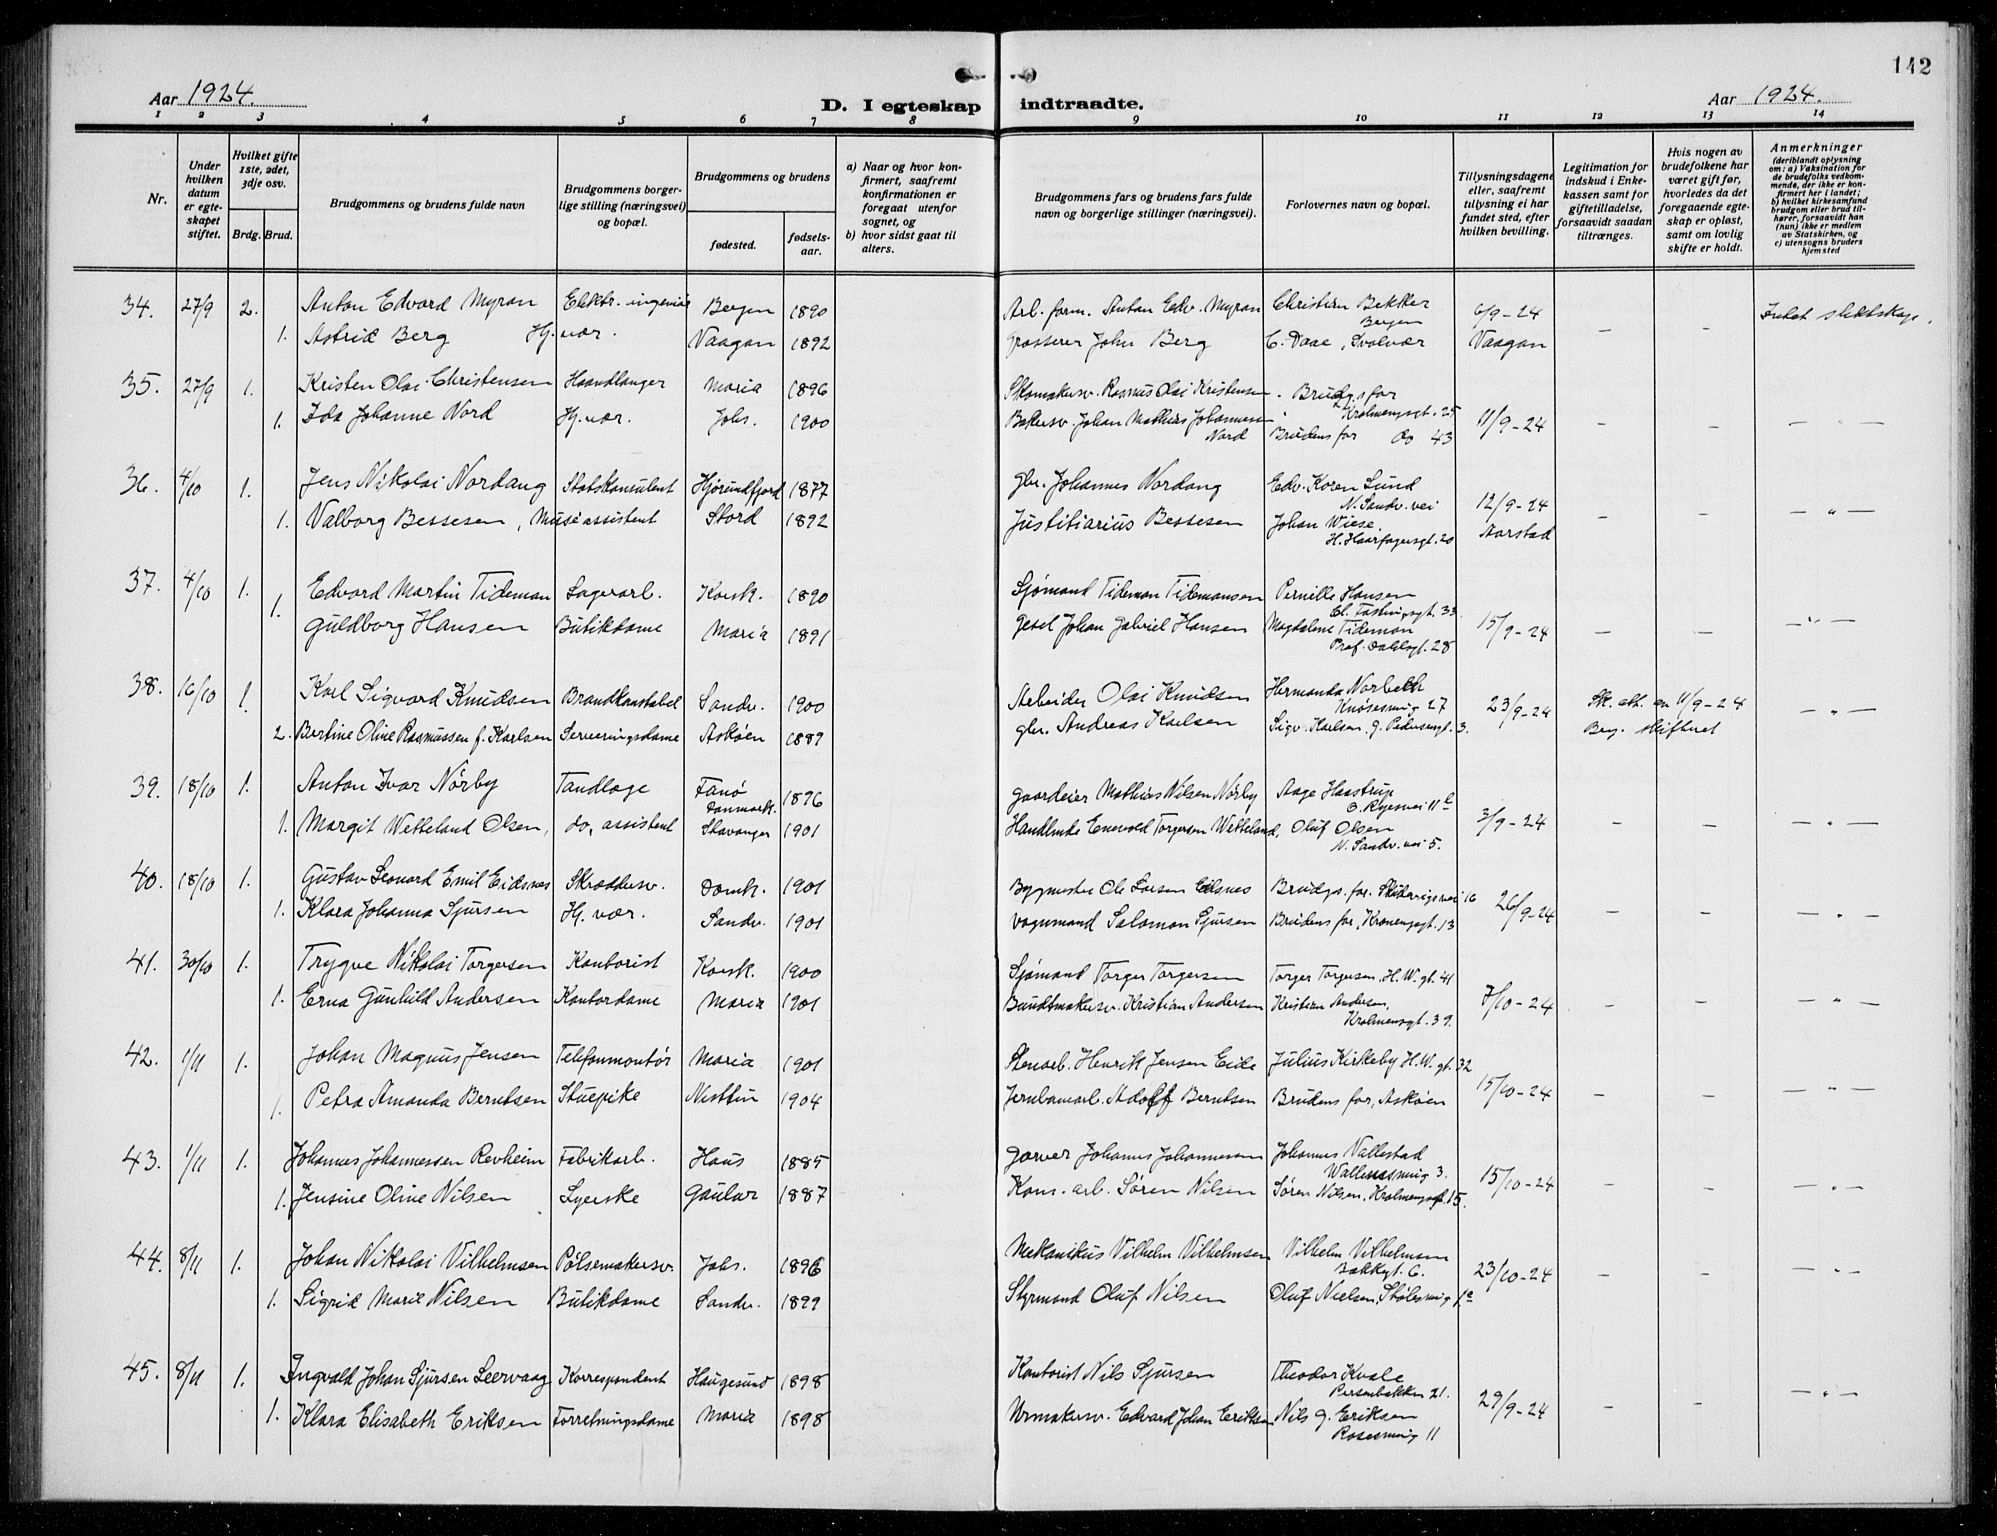 142
Aar 1924.
D. I egteskap indtraadte.
Aar 1924.
1 2 3 4 5 6 7 8 9 10 11 12 13 14
Nr.
Under hvilken datum er egteskapet stiftet.
Hvilket gifte 1ste, 2det, 3dje osv.
Brdg. Brud.
Brudgommens og brudens fulde navn
Brudgommens borgerlige stilling (næringsvei) og bopæl.
Brudgommens og brudens
fødested.
fødselsaar.
a) Naar og hvor konfirmert, saafremt konfirmationen er foregaat utenfor sognet, og
b) hvor sidst gaat til alters.
Brudgommens fars og brudens fars fulde navn og borgerlige stillinger (næringsvei).
Forlovernes navn og bopæl.
Tillysningsdagene eller, saafremt tillysning ei har fundet sted, efter hvilken bevilling.
Legitimation for indskud i Enkekassen samt for giftetilladelse, forsaavidt saadan tiltrænges.
Hvis nogen av brudefolkene har været gift før, hvorledes da det foregaaende egteskap er opløst, samt om lovlig skifte er holdt.
Anmerkninger (deriblandt oplysning om: a) Vaksination for de brudefolks vedkommende, der ikke er konfirmert her i landet; b) hvilket kirkesamfund brudgom eller brud tilhører, forsaavidt han (hun) ikke er medlem av Statskirken, og c) utensogns bruders hjemsted
34. 27/9 2. Anton Edvard Myran Elektr. ingeniør Bergen 1890 Arb. form. Anton Edv. Myran Christian Bekker Bergen 6/9-24 Intet slektskap.
1. Astrid Berg Hj. vær. Vaagan 1892 Grosserer John Berg C. Daae, Svolvær Vaagan — —
35. 27/9 1. Kristen Olai Christensen Haandlanger Maria 1896 Skomakersv. Rasmus Olai Kristensen Brudgs far Kralmengsgt. 25
1. Ida Johanne Nord Hj. vær. Johs. 1900 Bakersv. Johan Mathias Johannessen Nord Brudens far do 43 11/9-24 — — — " —
36. 4/10 1. Jens Nikolai Nordang Statskonsulent Hjørundfjord 1877 gbr. Johannes Nordang Edv. Koren Lund N. Sandv. vei 12/9-24
1. Valborg Bessesen, Museassistent Stord 1892 Justitiarius Bessesen Johan Wiese, H. Haarfagersgt. 20 Aarstad — — — " —
37. 4/10 1. Edvard Martin Tideman Sagarb. Korsk. 1890 Sjømand Tideman Tidemansen Pernille Hansen
1. Guldborg Hansen Butikdame Maria 1891 gesel Johan Gabriel Hansen Magdalene Tideman Prof. Dahlsgt. 28 15/9-24 — — — " —
38. 16/10 1. Karl Sigvard Knudsen Brandkonstabel Sandv. 1900 Arbeider Olai Knudsen Hermanda Knøsesmug 27 23/9-24 Sk. att. av 11/9-24 — " —
2. Bertine Oline Rasmussen f. Karlsen Serveringsdame Askøen 1889 gbr. Andreas Karlsen Sigv. Karlsen, G. Pedersensgt. 3. Berg. skifteret
39. 18/10 1. Anton Ivar Nørby Tandlæge Fanø Danmark 1896 Gaardeier Mathias Nilsen Nørby Aage Haastrup O. Ryesvei 11
1. Margit Wetteland Olsen, do, assistent Stavanger 1901 Handlende Enevold Torgersen Wetteland, Oluf Olsen N. Sandv. vei 5. 3/9-24 — — — " —
40. 18/10 1. Gustav Leonard Emil Eidsnes Skræddersv. Domk. 1901 Bygmester Ole Larsen Eidsnes Brudgs. far. 16 26/9-24
1. Klara Johanna Sjursen Hj. vær. Sandv. 1901 Vognmand Salomon Sjursen Brudens far, 13 — — — " —
41. 30/10 1. Trygve Nikolai Torgersen Kontorist Korsk. 1900 Sjømand Torger Torgersen Torger Torgersen, H. W. gt. 41
1. Erna Gunhild Andersen Kontordame Maria 1901 Bundtmakersv. Kristian Andersen Kristian Andersen, Kralmengsgt. 39. 7/10-24 — — — " —
42. 1/11 1. Johan Magnus Jensen Telefonmontør Maria 1901 Stenarb. Henrik Jensen Eide Julius Kirkeby H. W. gt. 32
1. Petra Amanda Berntsen Stuepike Nesttun 1904 Jernbanearb. Adolf Berntsen Brudens far, Askøen 15/10-24 — — — " —
43. 1/11 1. Johannes Johannessen Revheim Fabrikarb. Haus 1885 Garver Johannes Johannessen Johannes Vallestad 3.
1. Jensine Oline Nilsen Syerske Gaular 1887 Kons. arb. Søren Nilsen Søren Nilsen, Kralmengsgt. 15. 15/10-24 — — — " —
44. 8/11 1. Johan Nikolai Vilhelmsen Pølsemakersv. Johs. 1896 Mekanikus Vilhelm Vilhelmsen Vilhelm Vilhelmsen Bakkegt. 6. 23/10-24
1. Sigrid Marie Nilsen Butikdame Sandv. 1899 Styrmand Oluf Nilsen Oluf Nielsen, Stølesmug 1a — — — " —
45. 8/11 1. Ingvald Johan Sjursen Leervaag Korrespondent Haugesund 1898 Kontorist Nils Sjursen Theodor Kvale Persenbakken 21.
1. Klara Elisabeth Eriksen Forretningsdame Maria 1898 Urmakersv. Edvard Johan Eriksen Nils G. Eriksen Rosesmug 11 29/9-24 — — — " —